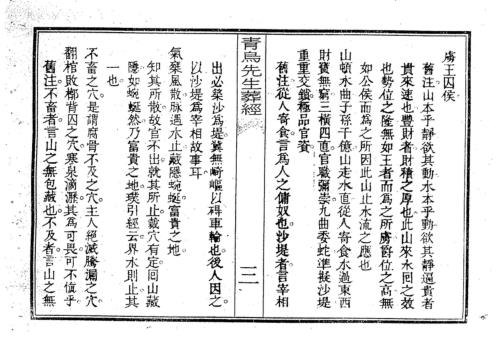 虜王囚侯
舊注山本乎靜欲其動水本乎動欲其靜逼貴者
貴來速也豐財者財積之厚也此山來水回之效
也勢位之隆無如王者而為之所虜爵位之高無
如公侯而為之所囚此山止水流之應也
山頓水曲子孫千億山走水直從人寄食水過東西
財寶無窮三橫四直官職彌崇九曲委蛇準擬沙堤
重重交鎖極品官資
舊注從人寄食言為人之傭奴也沙堤者言宰相
青烏先生葬經
三
出必築沙為堤冀無崎嶇以碍車輪也後人因之
以沙堤為宰相故事耳
氣乘風散脉遇水止藏隱蜿蜒富貴之地
知其所散故官不出就其所止裁穴有定回山藏
隱如蜿蜒然乃富貴之地璞引經云界水則止其
一也
不畜之穴。是謂腐骨不及之穴。主人絕滅騰漏之穴。
翻棺敗槨背囚之穴。寒泉滴瀝。其為可畏可不慎乎
舊注不畜者言山之無包藏也不及者言山之無